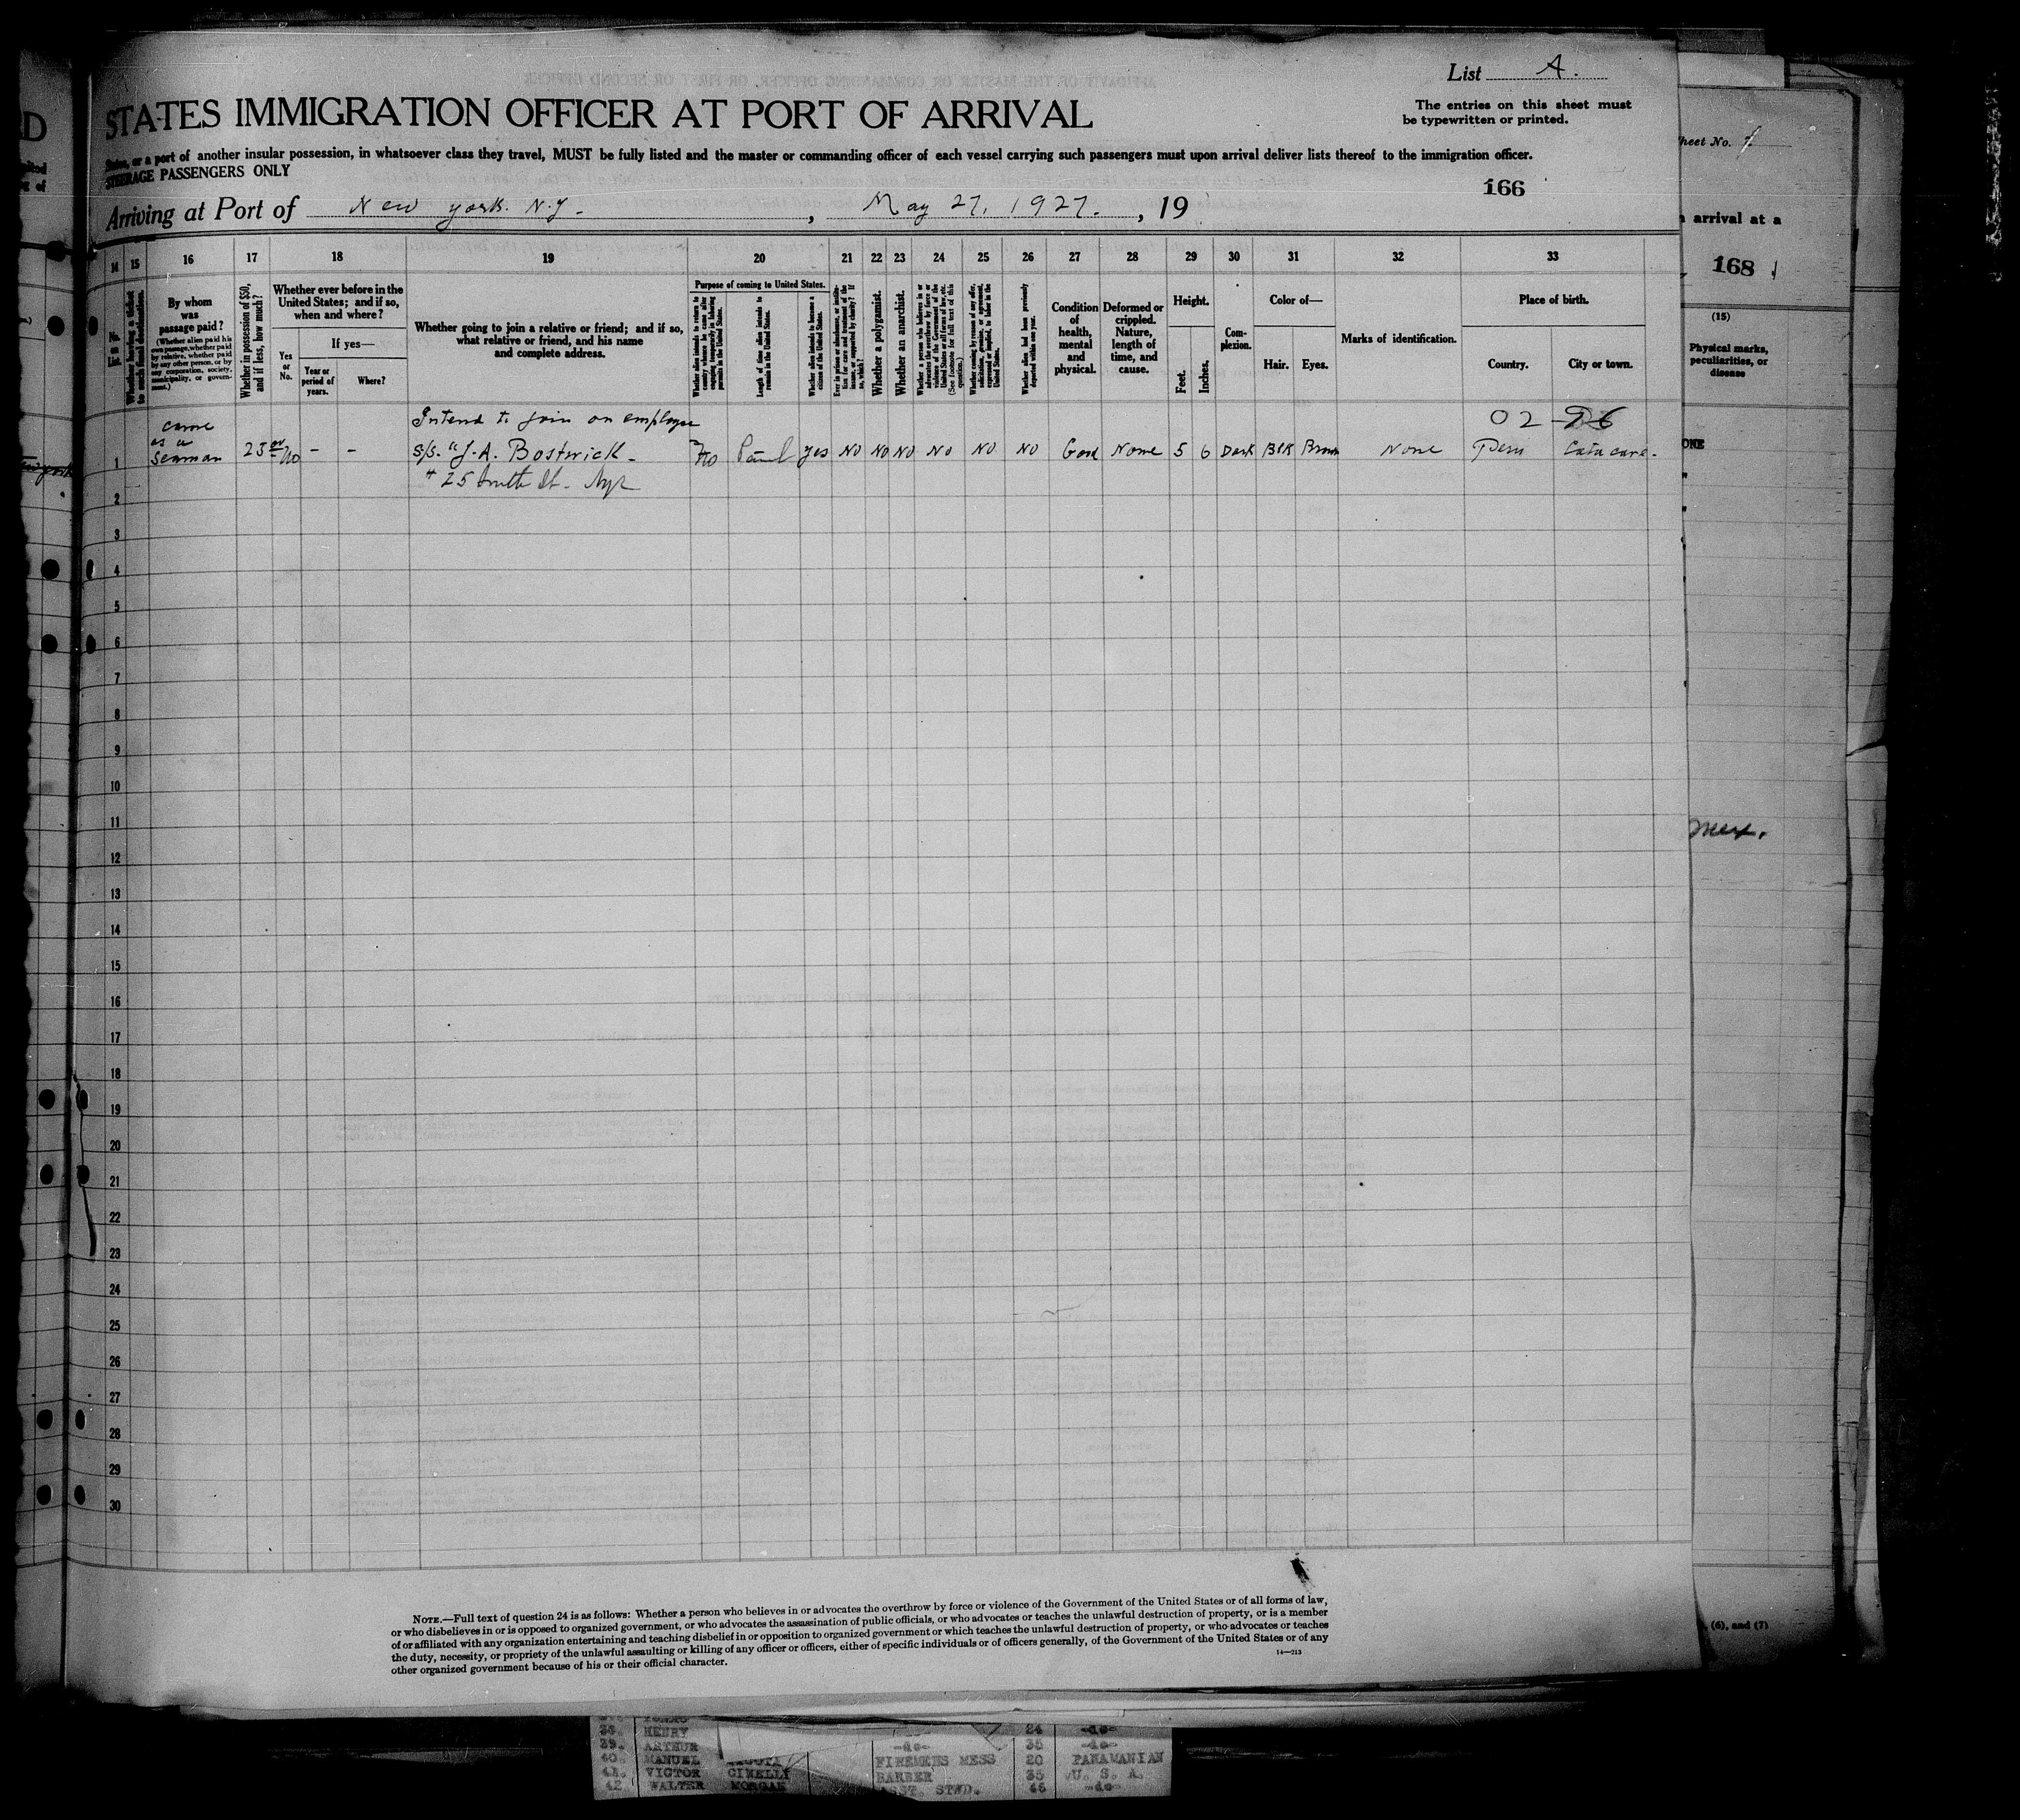 List A.
STATES IMMIGRATION OFFICER AT PORT OF ARRIVAL
The entries on this sheet must
be typewritten or printed.
States, or a port of another insular possession, in whatsoever class they travel, MUST be fully listed and the master or commanding officer of each vessel carrying such passengers must upon arrival deliver lists thereof to the immigration officer.
STEERAGE PASSENGERS ONLY
166
Arriving at Port of New York. N.Y. , May 27, 1927. , 19
14 15 16 17 18 19 20 21 22 23 24 25 26 27 28 29 30 31 32 33
No. on List.
Whether having a ticket to such final destination.
By whom was passage paid?
(Whether alien paid his own passage, whether paid by relative, whether paid by any other person, or by any corporation, society, municipality, or government.)
Whether in possession of $50, and if less, how much?
Whether ever before in the United States; and if so, when and where?
Yes or No.
If yes—
Year or period of years.
Where?
Whether going to join a relative or friend; and if so, what relative or friend, and his name and complete address.
Purpose of coming to United States.
Whether alien intends to return to country whence he came after engaging temporarily in laboring pursuits in the United States.
Length of time alien intends to remain in the United States.
Whether alien intends to become a citizen of the United States.
Ever in prison or almshouse, or institution for care and treatment of the insane, or supported by charity? If so, which?
Whether a polygamist.
Whether an anarchist.
Whether a person who believes in or advocates the overthrow by force or violence of the Government of the United States or all forms of law, etc. (See footnote for full text of this question.)
Whether coming by reason of any offer, solicitation, promise, or agreement, expressed or implied, to labor in the United States.
Whether alien had been previously deported within one year.
Condition of health, mental and physical.
Deformed or crippled. Nature, length of time, and cause.
Height.
Feet. Inches.
Complexion.
Color of—
Hair. Eyes.
Marks of identification.
Place of birth.
Country. City or town.
Intend to join as employe
came
as a
seaman
02
1 23 No - - S/S. "J. A. Bostwick - No yes NO NO NO NO NO NO Good None 5 6 Dark Blk Brown None Peru
25 St.
2
3
4
5
6
7
8
9
10
11
12
13
14
15
16
17
18
19
20
21
22
23
24
25
26
27
28
29
30
NOTE.—Full text of question 24 is as follows: Whether a person who believes in or advocates the overthrow by force or violence of the Government of the United States or of all forms of law,
or who disbelieves in or is opposed to organized government, or who advocates the assassination of public officials, or who advocates or teaches the unlawful destruction of property, or is a member
of or affiliated with any organization entertaining and teaching disbelief in or opposition to organized government or which teaches the unlawful destruction of property, or who advocates or teaches
the duty, necessity, or propriety of the unlawful assaulting or killing of any officer or officers, either of specific individuals or of officers generally, of the Government of the United States or of any
other organized government because of his or their official character.
14—213
Sheet No.
arrival at a
168
(15)
Physical marks,
peculiarities, or
disease
ONE
Mex.
(6), and (7)
38. HENRY 24 -do-
39. ARTHUR -do- 35 -do-
40. MANUEL FIREMENS MESS 20 PANAMANIAN
41. VICTOR CINELLI BARBER 35 U. S. A.
42. WALTER MORGAN ASST. STWD. 45 -do-